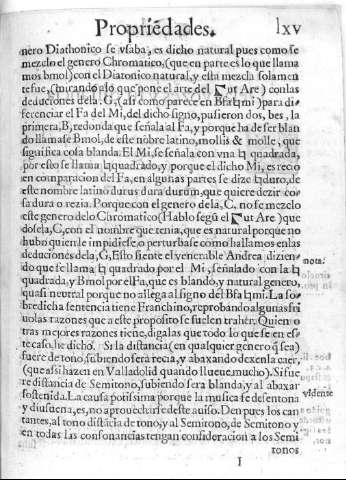 Propriedades. lxv
nero Diathonico se vsaba, es dicho natural pues como se
mezclo el genero Chromatico, (que en parte es lo que llama
mos bmol) con el Diatonico natural, y esta mezcla solamen
te fue, (mirando alo que pone el arte del Gut Are) con las
deduciones dela, G, (asi como parece en Bfa♮mi) para di-
ferenciar el Fa del Mi, del dicho signo, pusieron dos, bes, la
primera, B, redonda que señala al Fa, y porque ha de ser blan
do llamase Bmol, de este nõbre latino, mollis & molle, que
significa cosa blanda. El Mi, se señala con vna ♮ quadrada,
por esto se llama ♮quadrado, y porque el dicho Mi, es recio
en comparacion del Fa, en algunas partes se dize ♮duro, de
este nombre latino durus dura durum, que quiere dezir co-
sa dura o rezia. Porque con el genero dela, C, no se mezclo
este genero delo Chromatico (Hablo segũ el Gut Are) que
dosela, C, con el nombre que tenia, que es natural porque no
hubo quien le impidiese o perturbase como hallamos enlas
deduciones dela, G, Esto siente el venerable Andrea dizien-
do que se llama ♮ quadrado por el Mi, señalado con la ♮
quadrada, y Bmol por el Fa, que es blando, y natural genero,
quasi neutral porque no allega al signo del Bfa♮mi. La so-
bredicha sentencia tiene Franchino, reprobando algunas fri
uolas razones que a este proposito se suelen traher. Quien o
tras mejores razones tiene, digalas que todo lo que se en es-
te caso, he dicho. Si la distancia (en qualquier genero q̃ sea)
fuere de tono, subiendo sera recia, y abaxando dexenla caer,
(que asi hazen en Valladolid quando llueue mucho). Si fue
re distancia de Semitono, subiendo sera blanda, y al abaxar
sostenida. La causa potissima porque la musica se desentona
y disuena, es, no aprouecharse deste auiso. Den pues los can
tantes, al tono distãcia de tono, y al Semitono, de Semitono y
en todas las consonancias tengan consideracion a los Semi
tonos
I
nota.
vidente